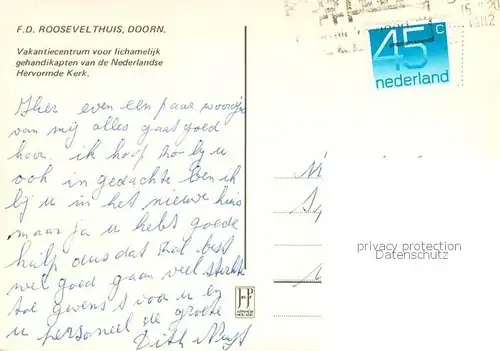 F.D. ROOSEVELTHUIS, DOORN.
Vakantiecentrum voor lichamelijk
gehandikapten van de Nederlandse
Hervormde Kerk.
45 c
nederland
Hier even een paar woordje
van mij alles gaat goed
hoor. ik hoop zo by u
ook in gedachte ben ik
bij u in het nieuwe huis
maar ja u hebt goede
hulp dus dat zal best
wel goed gaan veel sterkte
toe gewenst voor u en
u personeel de groete
privacy protection
Datenschutz